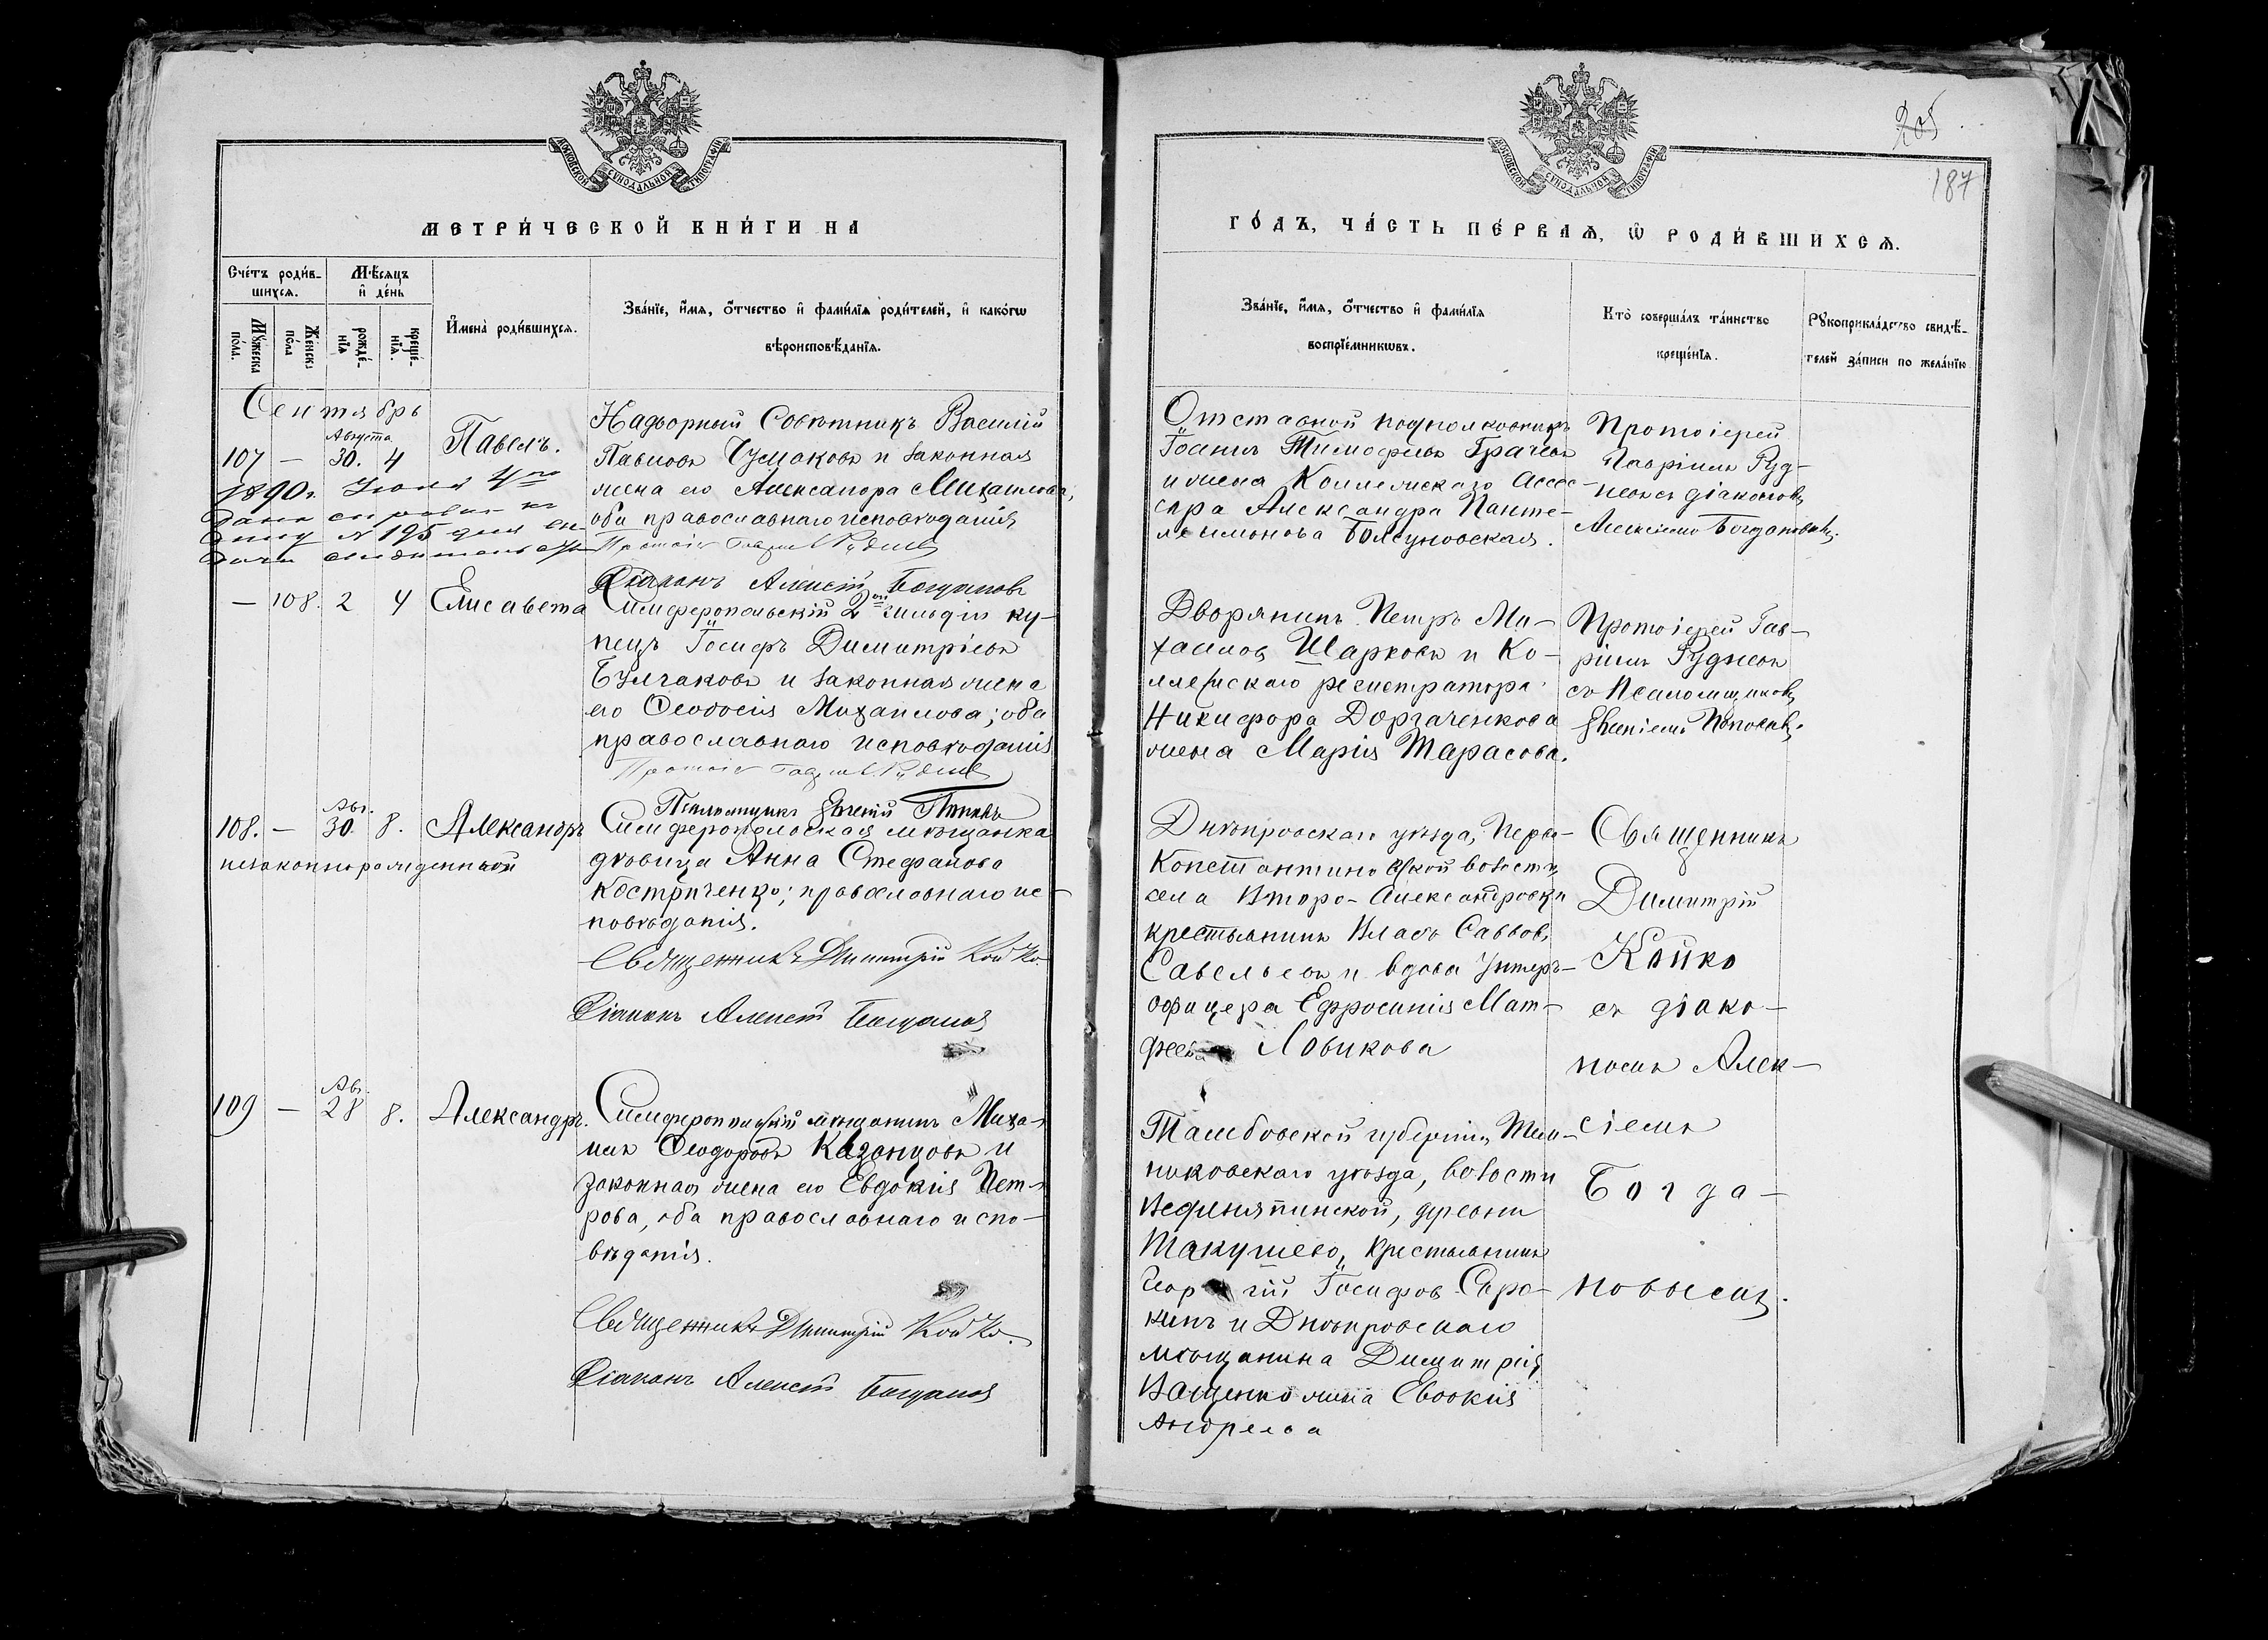 МОСКОВСКОЙ СѴНОДАЛЬНОЙ ТИПОГРАФІИ
МЕТРИ́ЧЕСКОЙ КНИ́ГИ НА
Сче́тъ роди́в-
шихся.
Мѣ́сяцъ
и҆ де́нь
Мꙋ́жеска
по́ла.
Же́нска
по́ла
рожде́-
нїѧ
креще́-
нїѧ.
И҆мена̀ роди́вшихсѧ.
Зва́нїе, и҆́мѧ, ѻ҆́тчество и҆ фами́лїѧ роди́телей, и҆ како́гѡ
вѣроисповѣ́данїѧ.
Сентябрь
107 — Августа 30. 4 Павелъ.
1890 г. Іюля 4го
дана справка
№ 195 для
Надворный Совѣтникъ Василій
Павловъ Чумаковъ и законная
жена его Александра Михайлова,
оба православнаго исповѣданія
Діаконъ Алексій Богдановъ
— 108. 2 4 Елисавета
Симферопольскій 2ой гильдіи ку-
пецъ Іосифъ Димитріевъ
Булгаковъ и законная жена
его Ѳеодосія Михайлова; оба
православнаго исповѣданія
Псаломщикъ Евгеній Поповъ
108. — Авг. 30. 8. Александръ
незаконнорожденный
Симферопольская мѣщанка
дѣвица Анна Стефанова
Костриченко; православнаго ис-
повѣданія.
Священникъ Димитрій Койко.
Діаконъ Алексій Богдановъ
109 — Авг. 28 8. Александръ.
Симферопольскій мѣщанинъ Миха-
илъ Ѳеодоровъ Казанцовъ и
законная жена его Евдокія Пет-
рова, оба православнаго испо-
вѣданія.
Священникъ Димитрій Койко.
Діаконъ Алексій Богдановъ
205
187
МОСКОВСКОЙ СѴНОДАЛЬНОЙ ТИПОГРАФІИ
ГО́ДЪ, ЧА́СТЬ ПЕ́РВАѦ, Ѡ҆ РОДИ́ВШИХСѦ.
Зва́нїе, и҆́мѧ, ѻ҆́тчество и҆ фами́лїѧ
воспрїе́мникѡвъ.
Кто̀ соверша́лъ та́инство
креще́нїѧ.
Рꙋкоприкла́дство свидѣ́-
телей за́писи по жела́нїю
Отставной подполковникъ
Іоаннъ Тимофеевъ Грачевъ
и жена Коллежскаго Ассес-
сора Александра Панте-
леимонова Болсуновская.
Протоіерей
Гавріилъ Руд-
невъ съ діакономъ
Алексіемъ Богдановымъ.
Дворянинъ Петръ Ми-
хаиловъ Шарковъ и Ко-
ллежскаго регистратора
Никифора Доргаченкова
жена Марія Тарасова.
Протоіерей Гав-
ріилъ Рудневъ
съ Псаломщикомъ
Евгеніемъ Поповымъ.
Днѣпровскаго уѣзда, Перво-
Константиновской волости
села Второ-Александровки
крестьянинъ Власъ Саввовъ
Савельевъ и вдова Унтеръ-
офицера Ефросинія Мат-
феева Новикова
Священникъ
Димитрій
Койко
съ діако-
номъ Алек-
сіемъ
Богда-
новымъ.
Тамбовской губерніи, Тем-
никовскаго уѣзда, волости
Веденяпинской, деревни
Такушево, крестьянинъ
Георгій Іосифовъ Соро-
кинъ и Днѣпровскаго
мѣщанина Димитрія
Ващенко жена Евдокія
Андреева